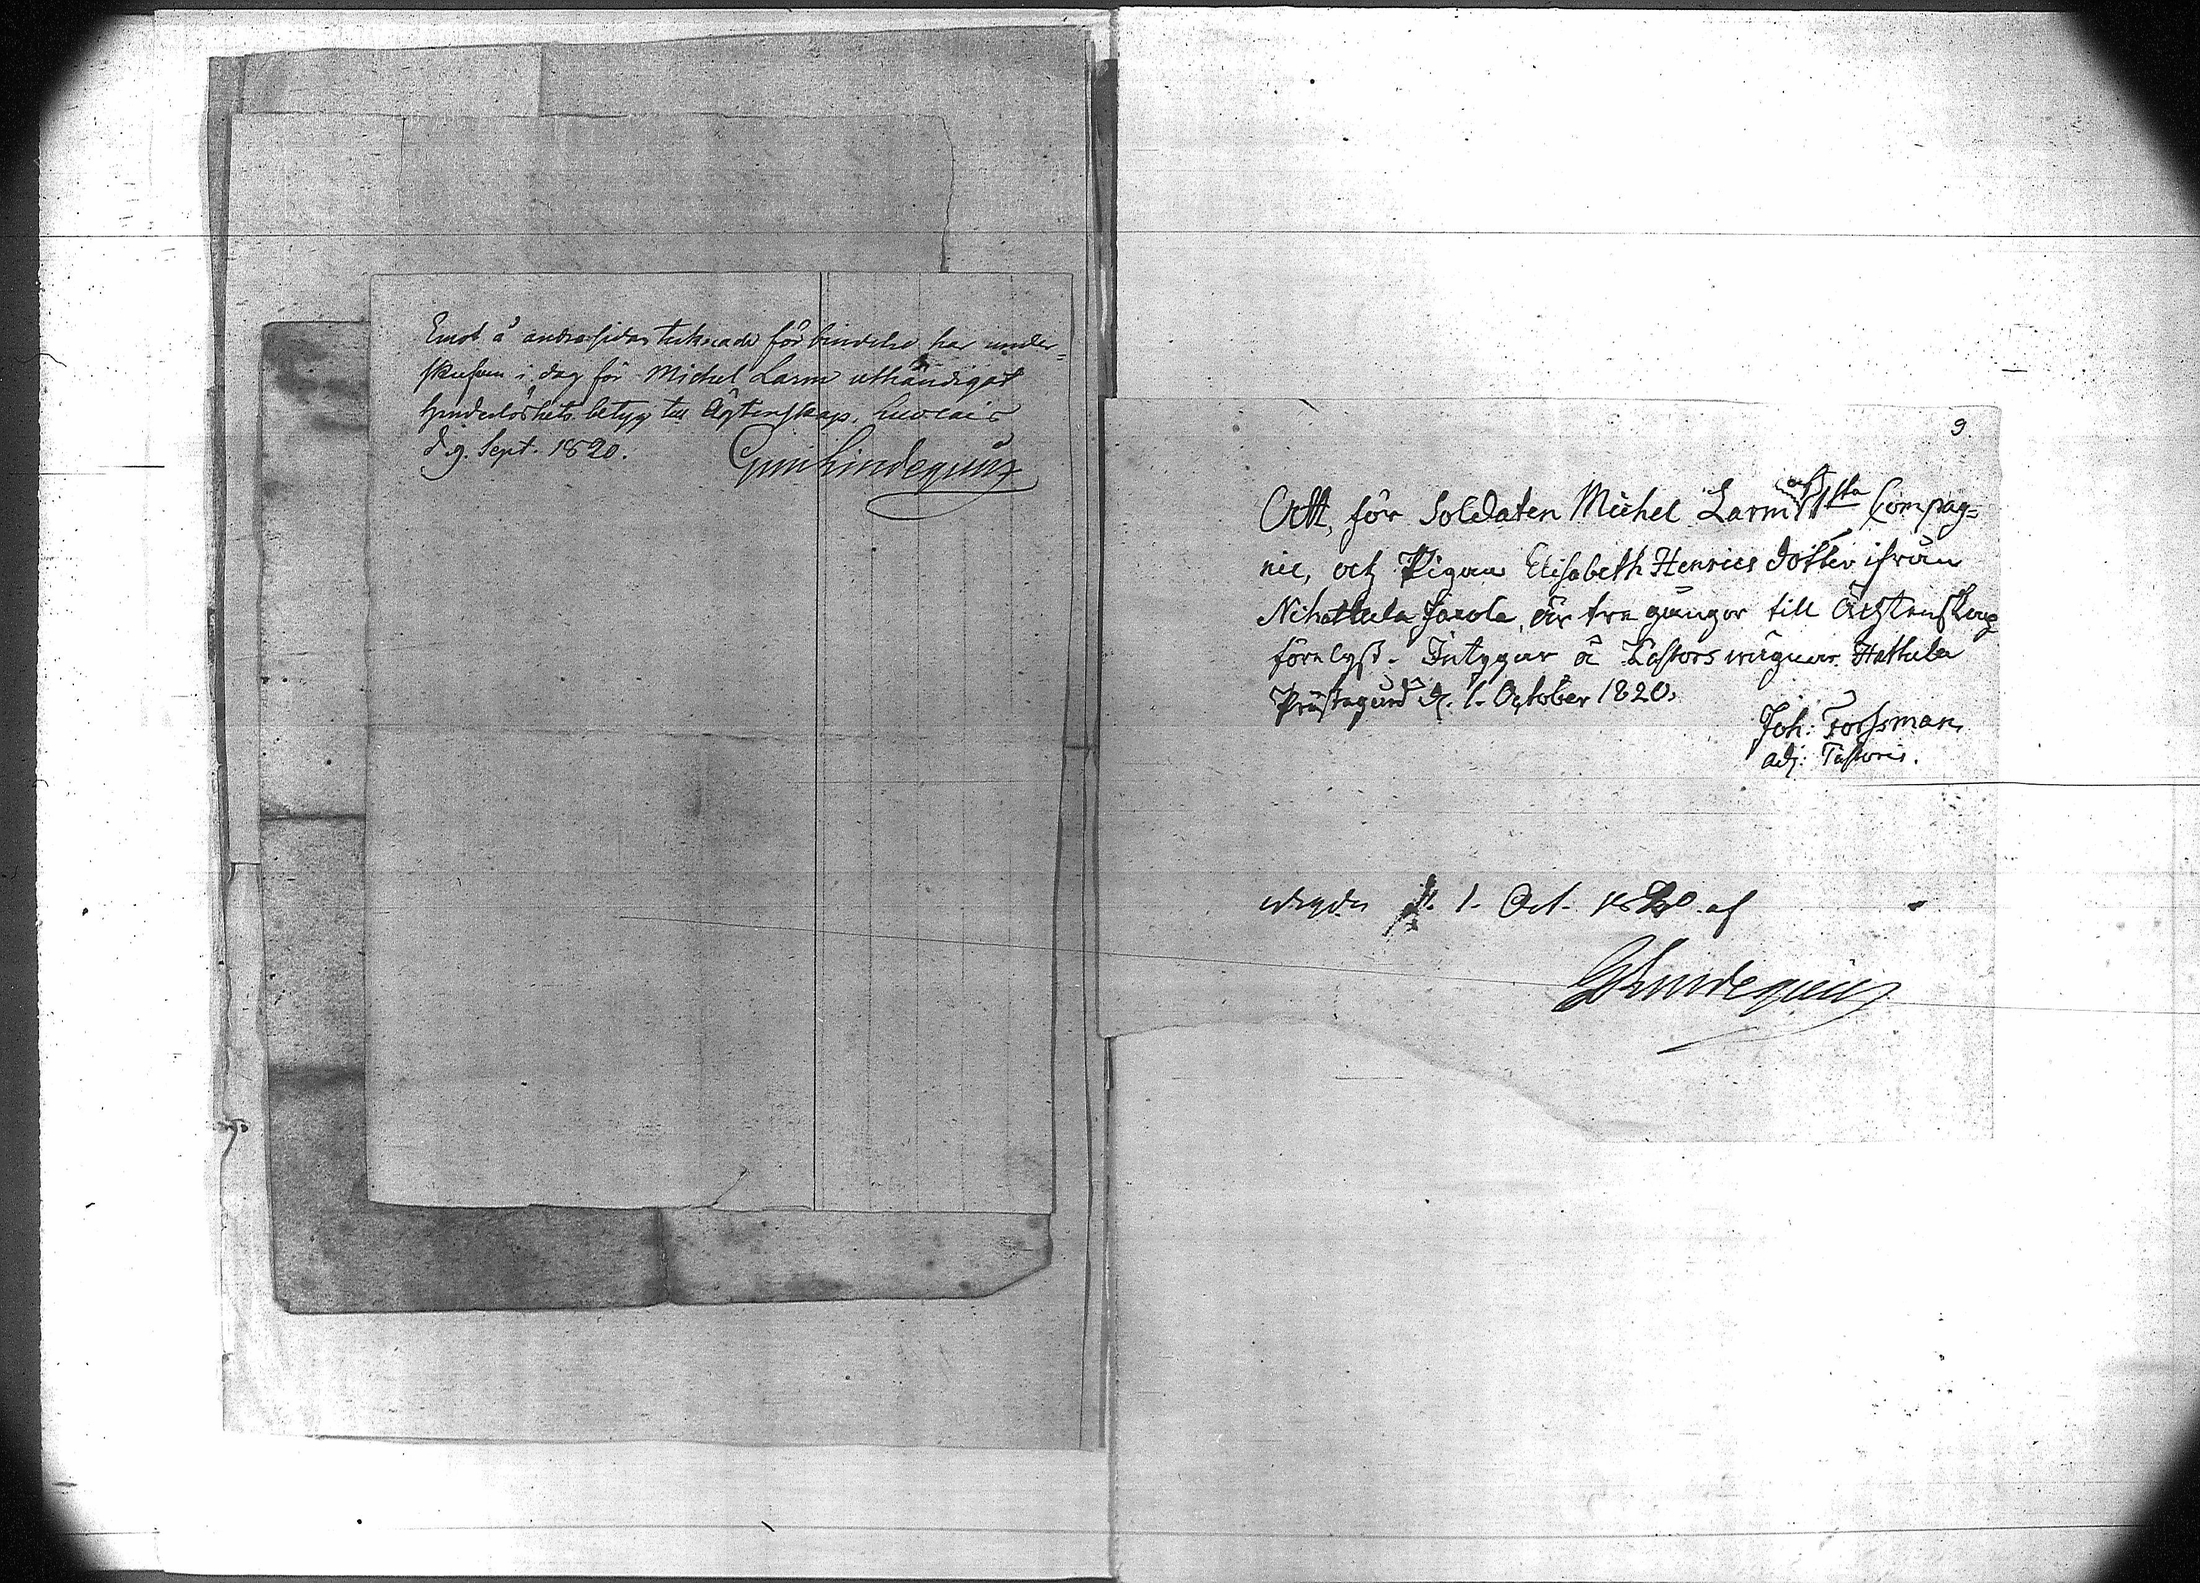 Emot å andra sidan tecknade förbindelse har under=
skrifven i dag för Michel Larm uthändigat
hinderlöshets betyg till Ägtenskap.
d. 9. Sept. 1820.
9.
Att, för Soldaten Michel Larm af 1sta Compag=
nie, och Pigan Elisabeth Henrics dotter ifrån
Nihattula Jarola, är tre gångor till Ächtenskap
förelyst. Intygar å Pastors wägnar. Hattula
Prästegård d. 1. October 1820.
Joh: Forssman,
adj: Pastoris.
d. 1. Oct. 1820 af
GLindequist